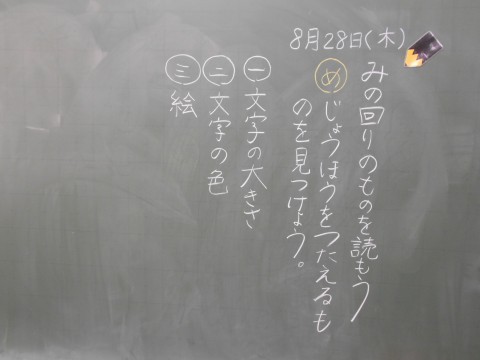 8月28日(木)
みの回りのものを読もう
めじょうほうをつたえるも
のを見つけよう。
一文字の大きさ
二文字の色
三絵